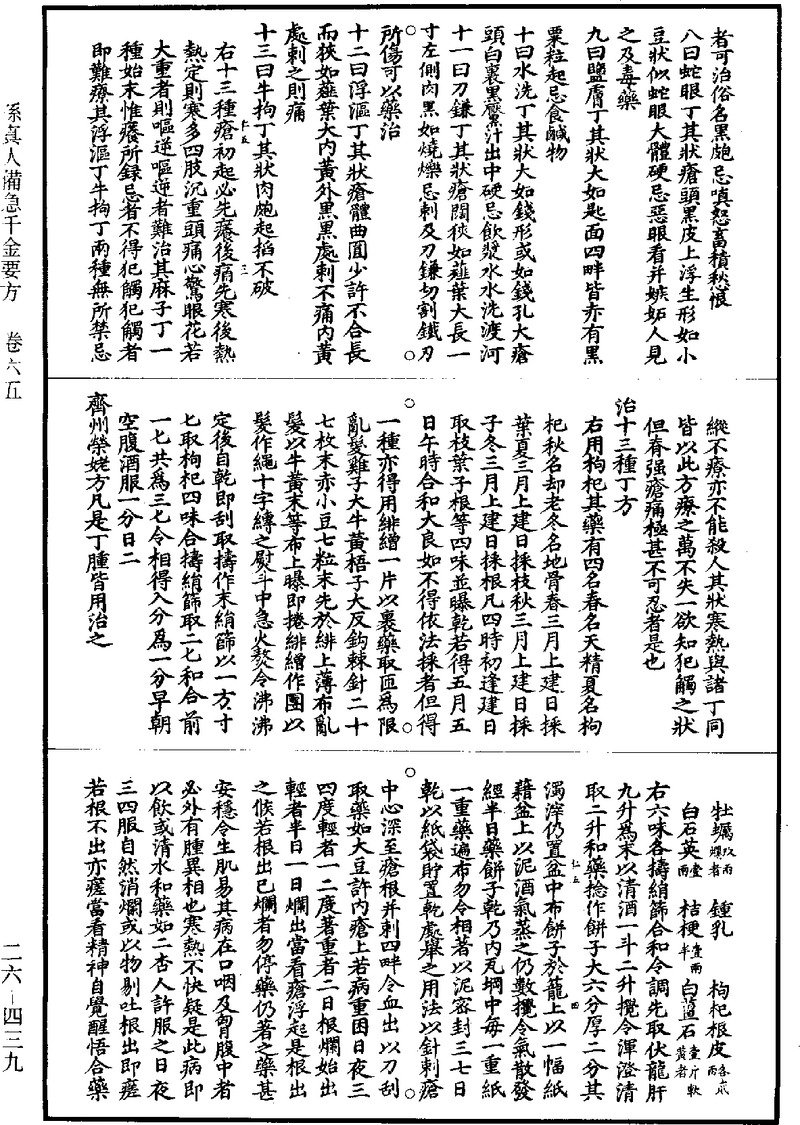 者可治俗名黑皰忌嗔怒畜積愁恨
八曰蛇眼丁其狀瘡頭黑皮上浮生形如小
豆狀似蛇眼大體硬忌惡眼看并嫉妬人見
之及毒藥
九曰鹽膚丁其狀大如匙面四畔皆赤有黑
粟粒起忌食鹹物
十曰水洗丁其狀大如錢形或如錢孔大瘡
頭白裏黑黶汁出中硬忌飲漿水水洗渡河
十一曰刀鐮丁其狀瘡闊狹如薤葉大長一
寸左側肉黑如燒爍忌刺及刀鐮切割鐵刃
所傷可以藥治
十二曰浮漚丁其狀瘡體曲圓少許不合長
而狹如薤葉大內黃外黑黑處刺不痛內黃
處刺之則痛
十三曰牛拘丁其狀肉皰起掐不破
右十三種瘡初起必先癢後痛先寒後熱
熱定則寒多四肢沉重頭痛心驚眼花若
大重者則嘔逆嘔逆者難治其麻子丁一
種始末惟癢所錄忌者不得犯觸犯觸者
即難療其浮漚丁牛拘丁兩種無所禁忌
縱不療亦不能殺人其狀寒熱與諸丁同
皆以此方療之萬不失一欲知犯觸之狀
但脊强瘡痛極甚不可忍者是也
治十三種丁方
右用枸杞其藥有四名春名天精夏名枸
杞秋名却老冬名地骨春三月上建日採
葉夏三月上建日採枝秋三月上建日採
子冬三月上建日採根凡四時初逢建日
取枝葉子根等四味並曝乾若得五月五
日午時合和大良如不得依法採者但得
一種亦得用緋繒一片以裹藥取匝爲限
亂髮雞子大牛黃梧子大反鈎棘針二十
七枚末赤小豆七粒末先於緋上薄布亂
髮以牛黃末等布上曝即捲緋繒作團以
髮作繩十字縛之熨斗中急火熬令沸沸
定後自乾即刮取擣作末絹篩以一方寸
七取枸杞四味合擣絹篩取二七和合前
一七共爲三七令相得入分爲一分早朝
空腹酒服一分日二
齊州榮姥方凡是丁腫皆用治之
牡蠣玖兩爛者 鍾乳 枸杞根皮各貳兩
白石英壹兩 桔梗壹兩半 白薑石壹斤軟黃者
右六味各擣絹篩合和令調先取伏龍肝
九升爲末以清酒一斗二升攪令渾澄清
取二升和藥捻作餅子大六分厚二分其
濁滓仍置盆中布餅子於籠上以一幅紙
藉盆上以泥酒氣蒸之仍數攪令氣散發
經半日藥餅子乾乃內瓦坩中每一重紙
一重藥遍布勿令相著以泥密封三七日
乾以紙袋貯置乾處舉之用法以針刺瘡
中心深至瘡根并刺四畔令血出以刀刮
取藥如大豆許內瘡上若病重困日夜三
四度輕者一二度著重者二日根爛始出
輕者半日一日爛出當看瘡浮起是根出
之候若根出已爛者勿停藥仍著之藥甚
安穩令生肌易其病在口咽及胷腹中者
必外有腫異相也寒熱不快疑是此病即
以飲或清水和藥如二杏人許服之日夜
三四服自然消爛或以物剔吐根出即瘥
若根不出亦瘥當看精神自覺醒悟合藥
孫真人備急千金要方 卷六五
二六–四三九